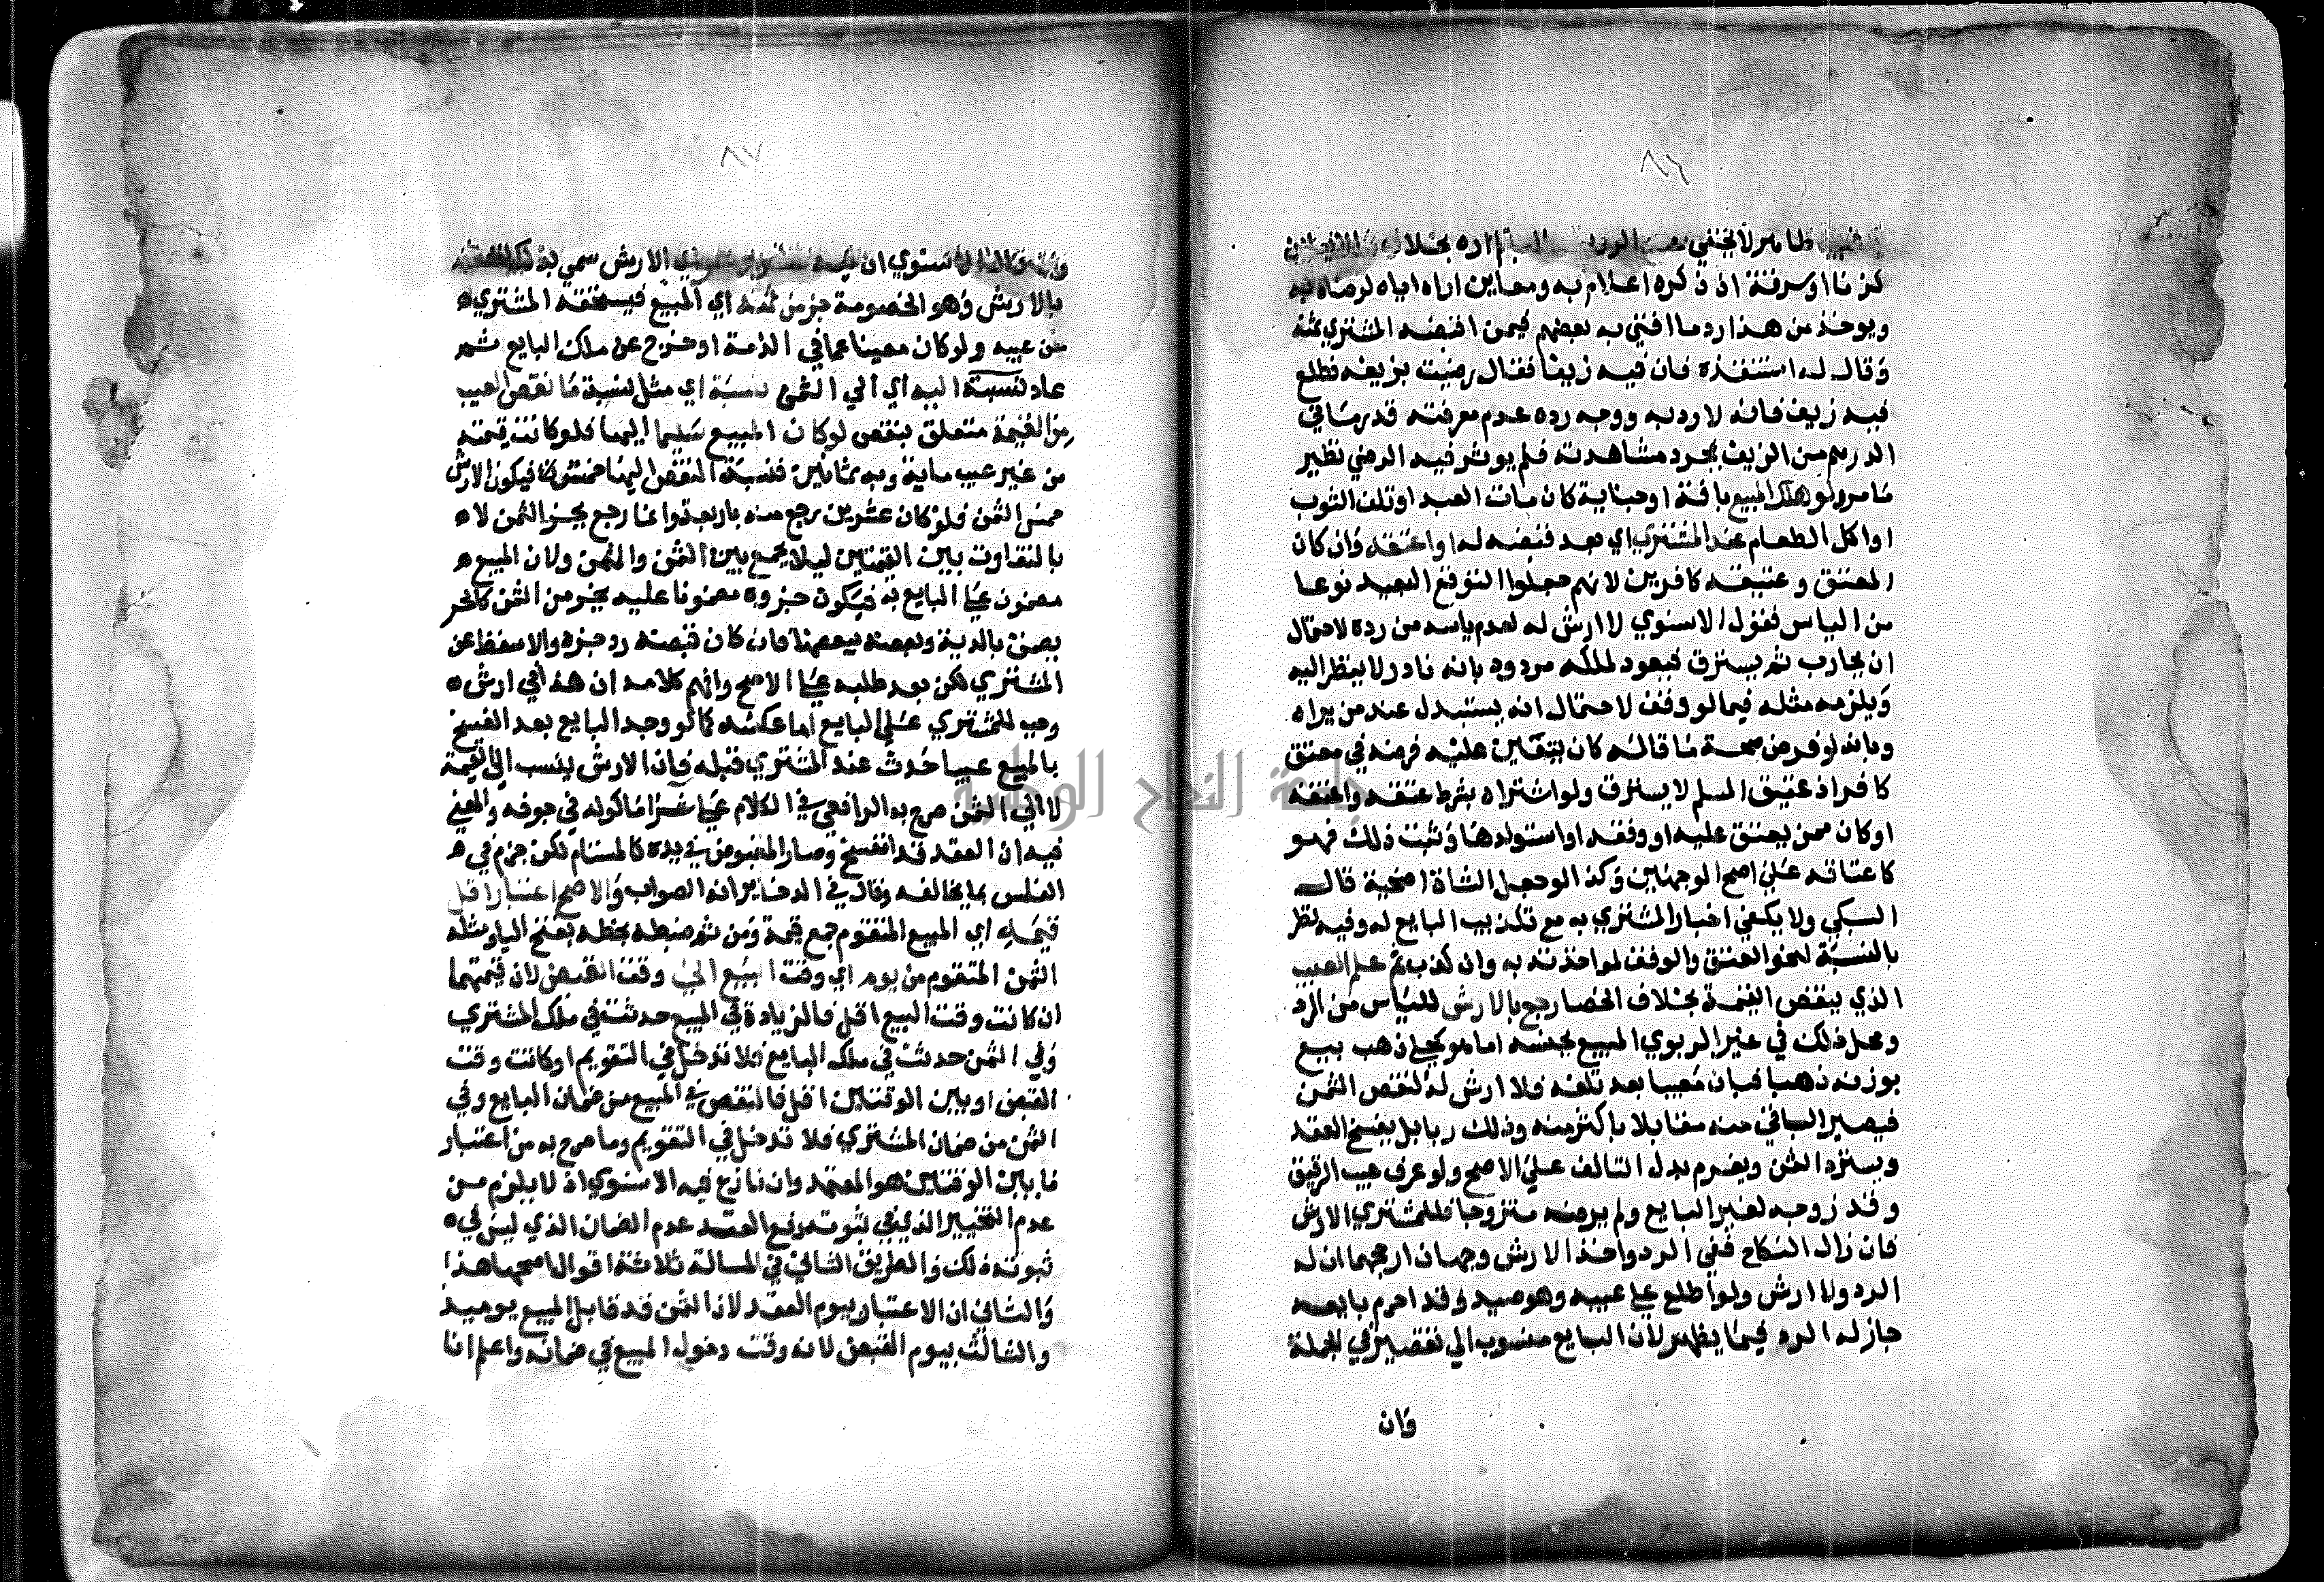 ٨٦
ظاهر لا يخفى اراه بخلاف
كزنا او سرقة ان ذكره اعلام به ومعاين اراه اياه لرضاه به
ويوخذ من هذا رد ما افتى به بعضهم فيمن اقبضه المشتري ثمنه
وقال له استنقذه فان فيه زيفا فقال رضيت بزيفه فطلع
فيه زيف فانه لا رد له ووجه رده عدم معرفته قدر ما في
الدرهم من الزيف بمجرد مشاهدته فلم يوثر فيه الرضي نظير
ما مر ولو هلك المبيع بافة او جناية كان مات العبد او تلف الثوب
او اكل الطعام عند المشتري اي بعد قبضه له او اعتقه وان كان
المعتق وعتيقه كافرين لانهم جعلوا التوقع البعيد نوعا
من الياس فقول الاسنوي لا ارش له لعدم ياسه من رده لاحتمال
ان يحارب ثم يسترق فيعود لملكه مردود بانه نادر لا ينظر اليه
ويلزمه مثله فيما لو وقف لاحتمال انه يستبدل عند من يراه
وبانه لو فرض صحة ما قاله كان يتعين عليه فرضه في معتق
كافر اذ عتيق المسلم لا يسترق ولو اشتراه بشرط عتقه واعتقه
او كان ممن يعتق عليه او وقفه او استولدها وثبت ذلك فهو
كاعتاقه على اصح الوجهين وكذا لو جعل الشاة اضحية قال
السبكي ولا يكفي اخبار المشتري به مع تكذيب البايع له وفيه نظر
بالنسبة لنحو العتق والوقف لمواخذته به وان كذب ثم علم العيب
الذي ينقص القيمة بخلاف الخصا رجع بالارش للياس من الرد
ومحل ذلك في غير الربوي المبيع بجنسه اما هو كحلي ذهب بيع
بوزنه ذهبا فبان معيبا بعد تلفه فلا ارش له لنقص الثمن
فيصير الباقي منه مقابلا باكثر منه وذلك ربا بل يفسخ العقد
ويسترد الثمن ويغرم بدل التالف على الاصح ولو عرف عيب الرقيق
وقد زوجه لغير البايع ولم يرضه متزوجا فللمشتري الارش
فان زال النكاح ففي الرد واخذ الارش وجهان ارجحهما ان له
الرد ولا ارش ولو اطلع على عيبه وهو صيد وقد احرم بايعه
جاز له الرد فيما يظهر لان البايع منسوب الى تقصير في الجملة
وان
٨٧
الاسنوي ان فيه الارش سمي بذلك لتعلقه
بالارش وهو الخصومة جزء من ثمنه اي المبيع فيستحقه المشتري
من عيبه ولو كان معينا عما في الذمة او خرج عن ملك البايع ثم
عاد نسبته اليه اي الى الثمن نسبة اي مثل نسبة ما نقص العيب
من القيمة متعلق بنقص لو كان المبيع سليما اليها فلو كانت قيمته
من غير عيب ماية وبه ثمانين فنسبة النقص اليها خمس فيكون الارش
خمس الثمن فلو كان عشرين رجع منه باربعة وانما رجع بجزء الثمن لا
بالتفاوت بين القيمتين ليلا يجمع بين الثمن والمثمن ولان المبيع
مضمون على البايع به فيكون جزوه مضمونا عليه بجزء من الثمن كالحر
يضمن بالدية وبعضه ببعضها فان كان قبضه رد جزه والا سقط عن
المشتري لكن بعد طلبه على الاصح وافهم كلامه ان هذا في ارش
وجب للمشتري على البايع اما عكسه كما لو وجد البايع بعد الفسخ
بالمبيع عيبا حدث عند المشتري قبله فان الارش ينسب الى القيمة
لا الى الثمن صرح به الرافعي في الكلام على شرا ما كوله في جوفه والمعنى
فيه ان العقد قد انفسخ وصار المقبوض في يده كالمستام لكن جزم في
الفلس بما يخالفه وقال في الدخاير انه الصواب والاصح اعتبار اقل
قيمه اي المبيع المتقوم جمع قيمة ومن ثم ضبطه بخطه بفتح اليا ومثله
الثمن المتقوم من يوم اي وقت البيع الى وقت القبض لان قيمتهما
ان كانت وقت البيع اقل فالزيادة في المبيع حدثت في ملك المشتري
وفي الثمن حدثت في ملك البايع فلا تدخل في التقويم او كانت وقت
القبض او بين الوقتين اقل فالنقص في المبيع من ضمان البايع وفي
الثمن من ضمان المشتري فلا تدخل في التقويم وما صرح به من اعتبار
ما بين الوقتين هو المعتمد وان نازع فيه الاسنوي اذ لا يلزم من
عدم التخيير الذي في ثبوته رفع العقد عدم الضمان الذي ليس في
ثبوته ذلك والطريق الثاني في المسالة ثلاثة اقوال اصحها هذا
والثاني ان الاعتبار بيوم العقد لان الثمن قد قابل المبيع يوميذ
والثالث بيوم القبض لانه وقت دخول المبيع في ضمانه واعلم انا
جامعة النجاح الوطنية